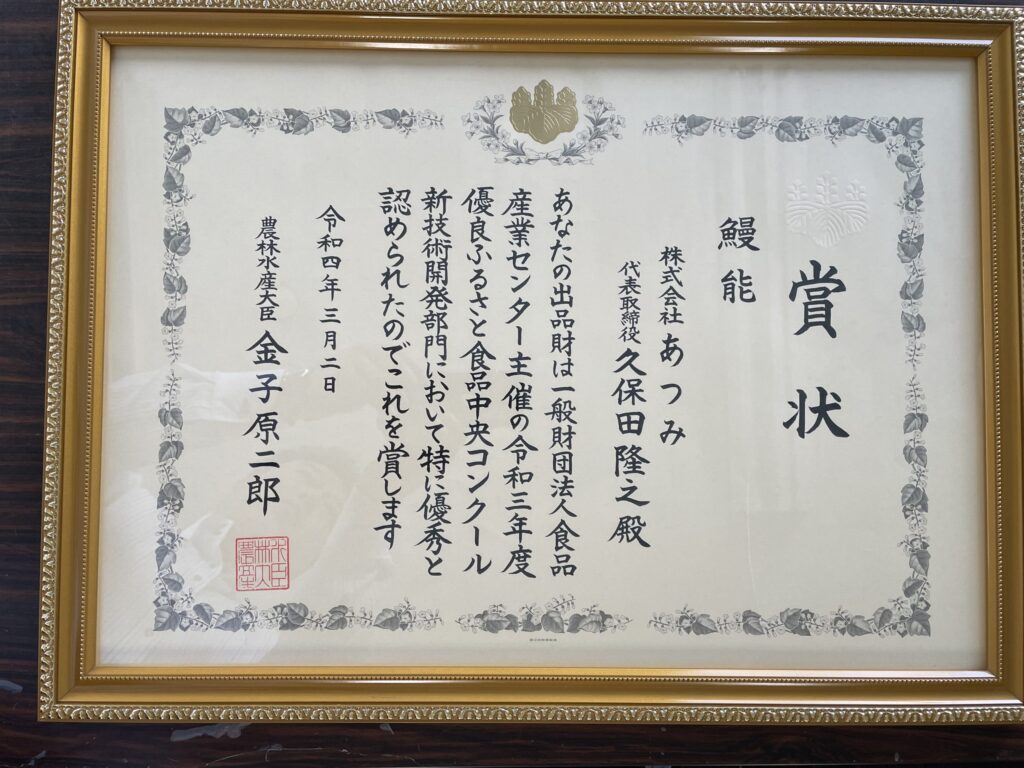 賞状
鰻能
株式会社 あつみ
代表取締役 久保田隆之殿
あなたの出品財は一般財団法人食品
産業センター主催の令和三年度
優良ふるさと食品中央コンクール
新技術開発部門において特に優秀と
認められたのでこれを賞します
令和四年三月二日
農林水産大臣 金子原二郎